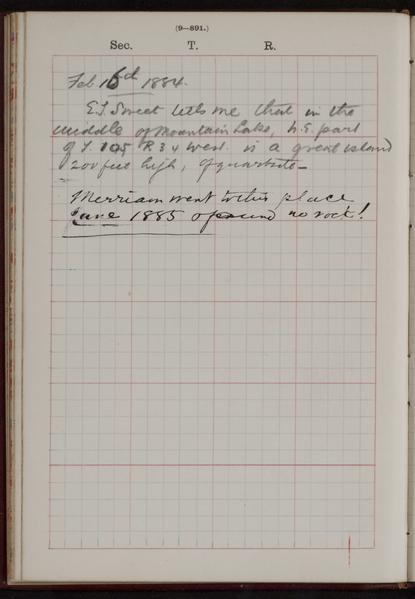 (9—891.)
Sec. T. R.
Feb 16d 1884.
E.T. Sweet tells me that in the
middle of Mountain Lake, N.E. part
of T. 105 R 34 West. is a great island
200 feet high, of quartzite—
Merriam went to this place
June 1885 & found no rock!